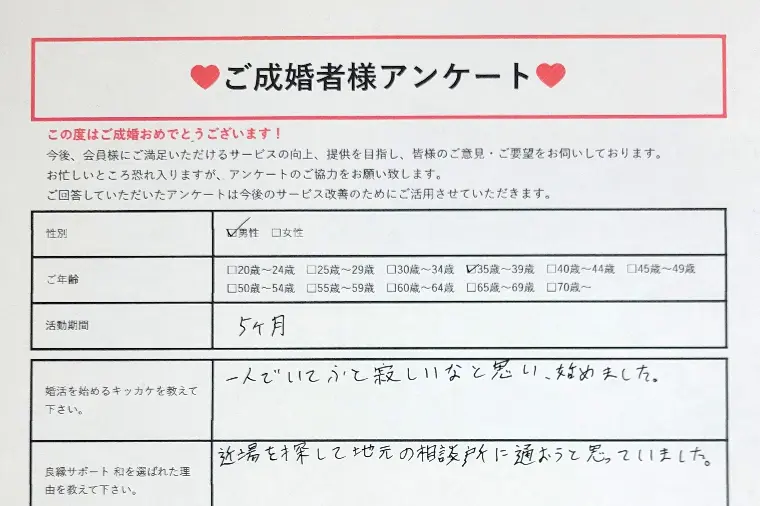 ❤ご成婚者様アンケート❤
この度はご成婚おめでとうございます！
今後、会員様にご満足いただけるサービスの向上、提供を目指し、皆様のご意見・ご要望をお伺いしております。
お忙しいところ恐れ入りますが、アンケートのご協力をお願い致します。
ご回答していただいたアンケートは今後のサービス改善のためにご活用させていただきます。
性別 ☑男性 □女性
ご年齢 □20歳～24歳 □25歳～29歳 □30歳～34歳 ☑35歳～39歳 □40歳～44歳 □45歳～49歳
□50歳～54歳 □55歳～59歳 □60歳～64歳 □65歳～69歳 □70歳～
活動期間 5ヶ月
婚活を始めるキッカケを教えて
下さい。
一人でいてふと寂しいなと思い、始めました。
良縁サポート 和を選ばれた理
由を教えて下さい。
近場を探して地元の相談所に通おうと思っていました。